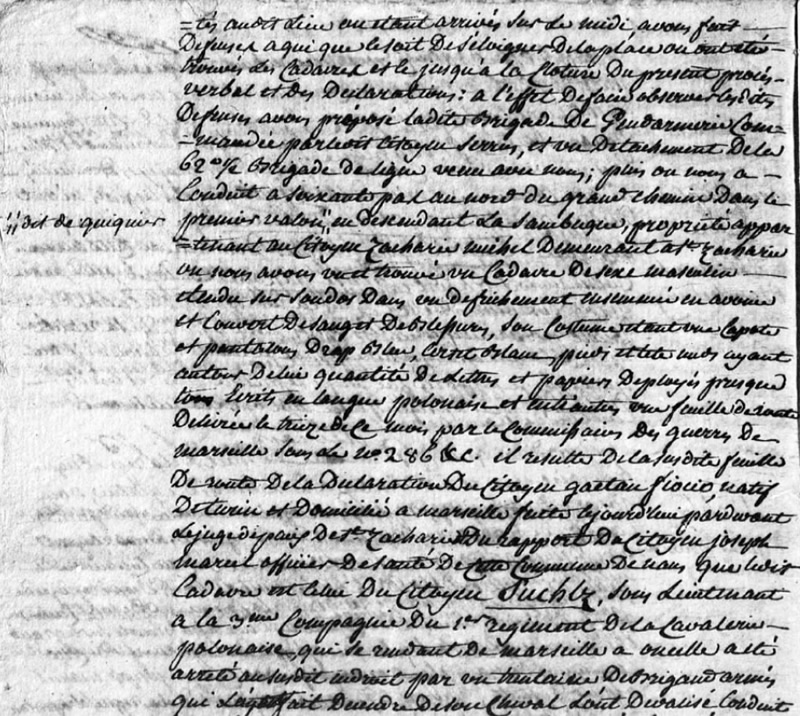 =tés audit Lieu en étant arrivés sur Le midi avons fait
Defenses a qui que ce soit De s'éloigner de la place ou ont été
trouvés Les Cadavres et ce jusqu'à la Cloture Du present procès-
verbal et des Declarations: a l'effet De faire observer lesdites
Defenses avons préposé ladite Brigade De Gendarmerie Com-
-mandée par ledit Citoyen Serrin, et un Detachement De la
62me ½ Brigade de ligne venu avec nous; puis on nous a
Conduit a soixante pas au nord du grand chemin Dans le
// dit de quiquier
premier valon // en descendant La Sambuque, propriété appar
=tenant au Citoyen Zacharie michel Demeurant a St. Zacharie
ou nous avons vu et trouvé un Cadavre De sexe masculin
étendu sur son dos Dans un defrichement ensemencé en avoine
et Couvert De sang et De Blessures, son Costume étant une Capote
et pantalons Drap Bleu, pieds et tête nuds ayant
autour De lui quantité De Lettres et papiers Deployés presque
tous Ecrits en langue polonaise et entr'autres une feuille de route
Delivrée le treize de Ce mois par le Commissaire Des guerres de
marseille sous Le no. 286 &c. il resulte De la susdite feuille
De route De la Declaration Du Citoyen gaetan fiocio natif
De turin et Domicilié a marseille faite cejourd'hui pardevant
Le juge de paix De St. Zacharie Du rapport Du Citoyen joseph
marcel officier De santé De Cette Commune De nans que ledit
Cadavre est Celui Du Citoyen Suchlz, sous Lieutenant
a la 3me Compagnie Du 1er regiment De la Cavalerie
polonaise, qui se rendant de marseille a oneille a été
arreté au susdit endroit par un trentaine De Brigands armés
qui fait Decendre De son Cheval L'ont Devalisé Conduit